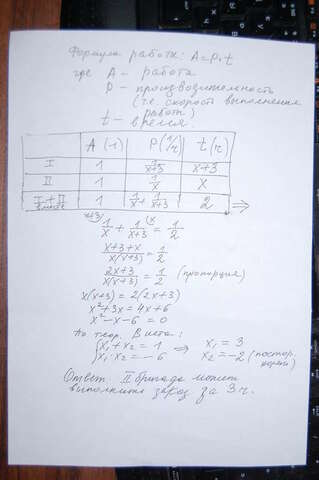 Формула работы: A = P · t
где A – работа
P – производительность
(т.е. скорость выполнения
работы)
t – время.
A (1) P(1/ч) t(ч)
I 1 1/x+3 x+3
II 1 1/x x
I + II 1 1/x + 1/x+3 2 ⇒
(x+3) (x
1/x + 1/x+3 = 1/2
x+3+x/x(x+3) = 1/2
2x+3/x(x+3) = 1/2 (пропорция)
x(x+3) = 2(2x+3)
x²+3x = 4x+6
x²-x-6 = 0
По теор. Виета:
{x₁+x₂ = 1 ⇒ x₁ = 3
x₁·x₂ = -6 x₂ = -2 (постор. корень)
Ответ. II бригада может
выполнить заказ за 3 ч.